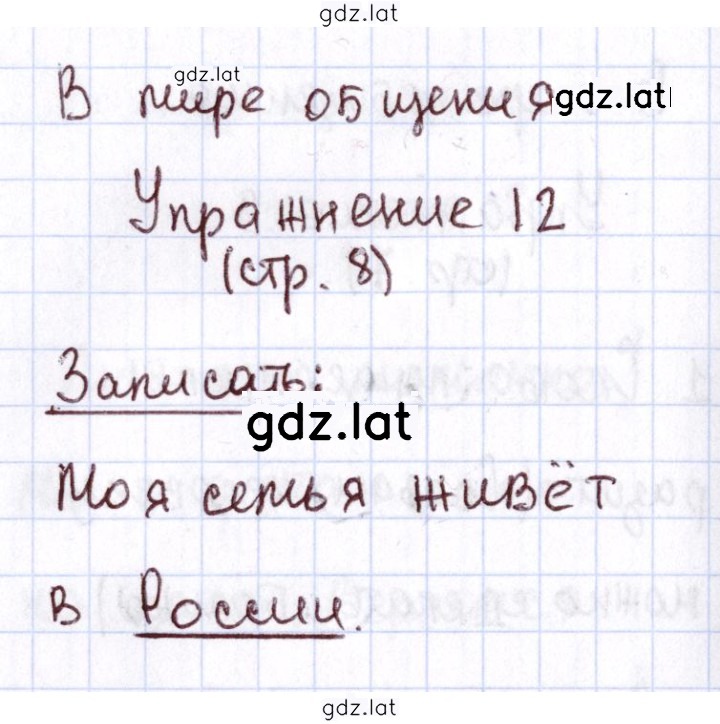 gdz.lat
gdz.lat
В мире общения gdz.lat
Упражнение 12
(стр. 8)
Записать:
gdz.lat
Моя семья живёт
в России.
gdz.lat